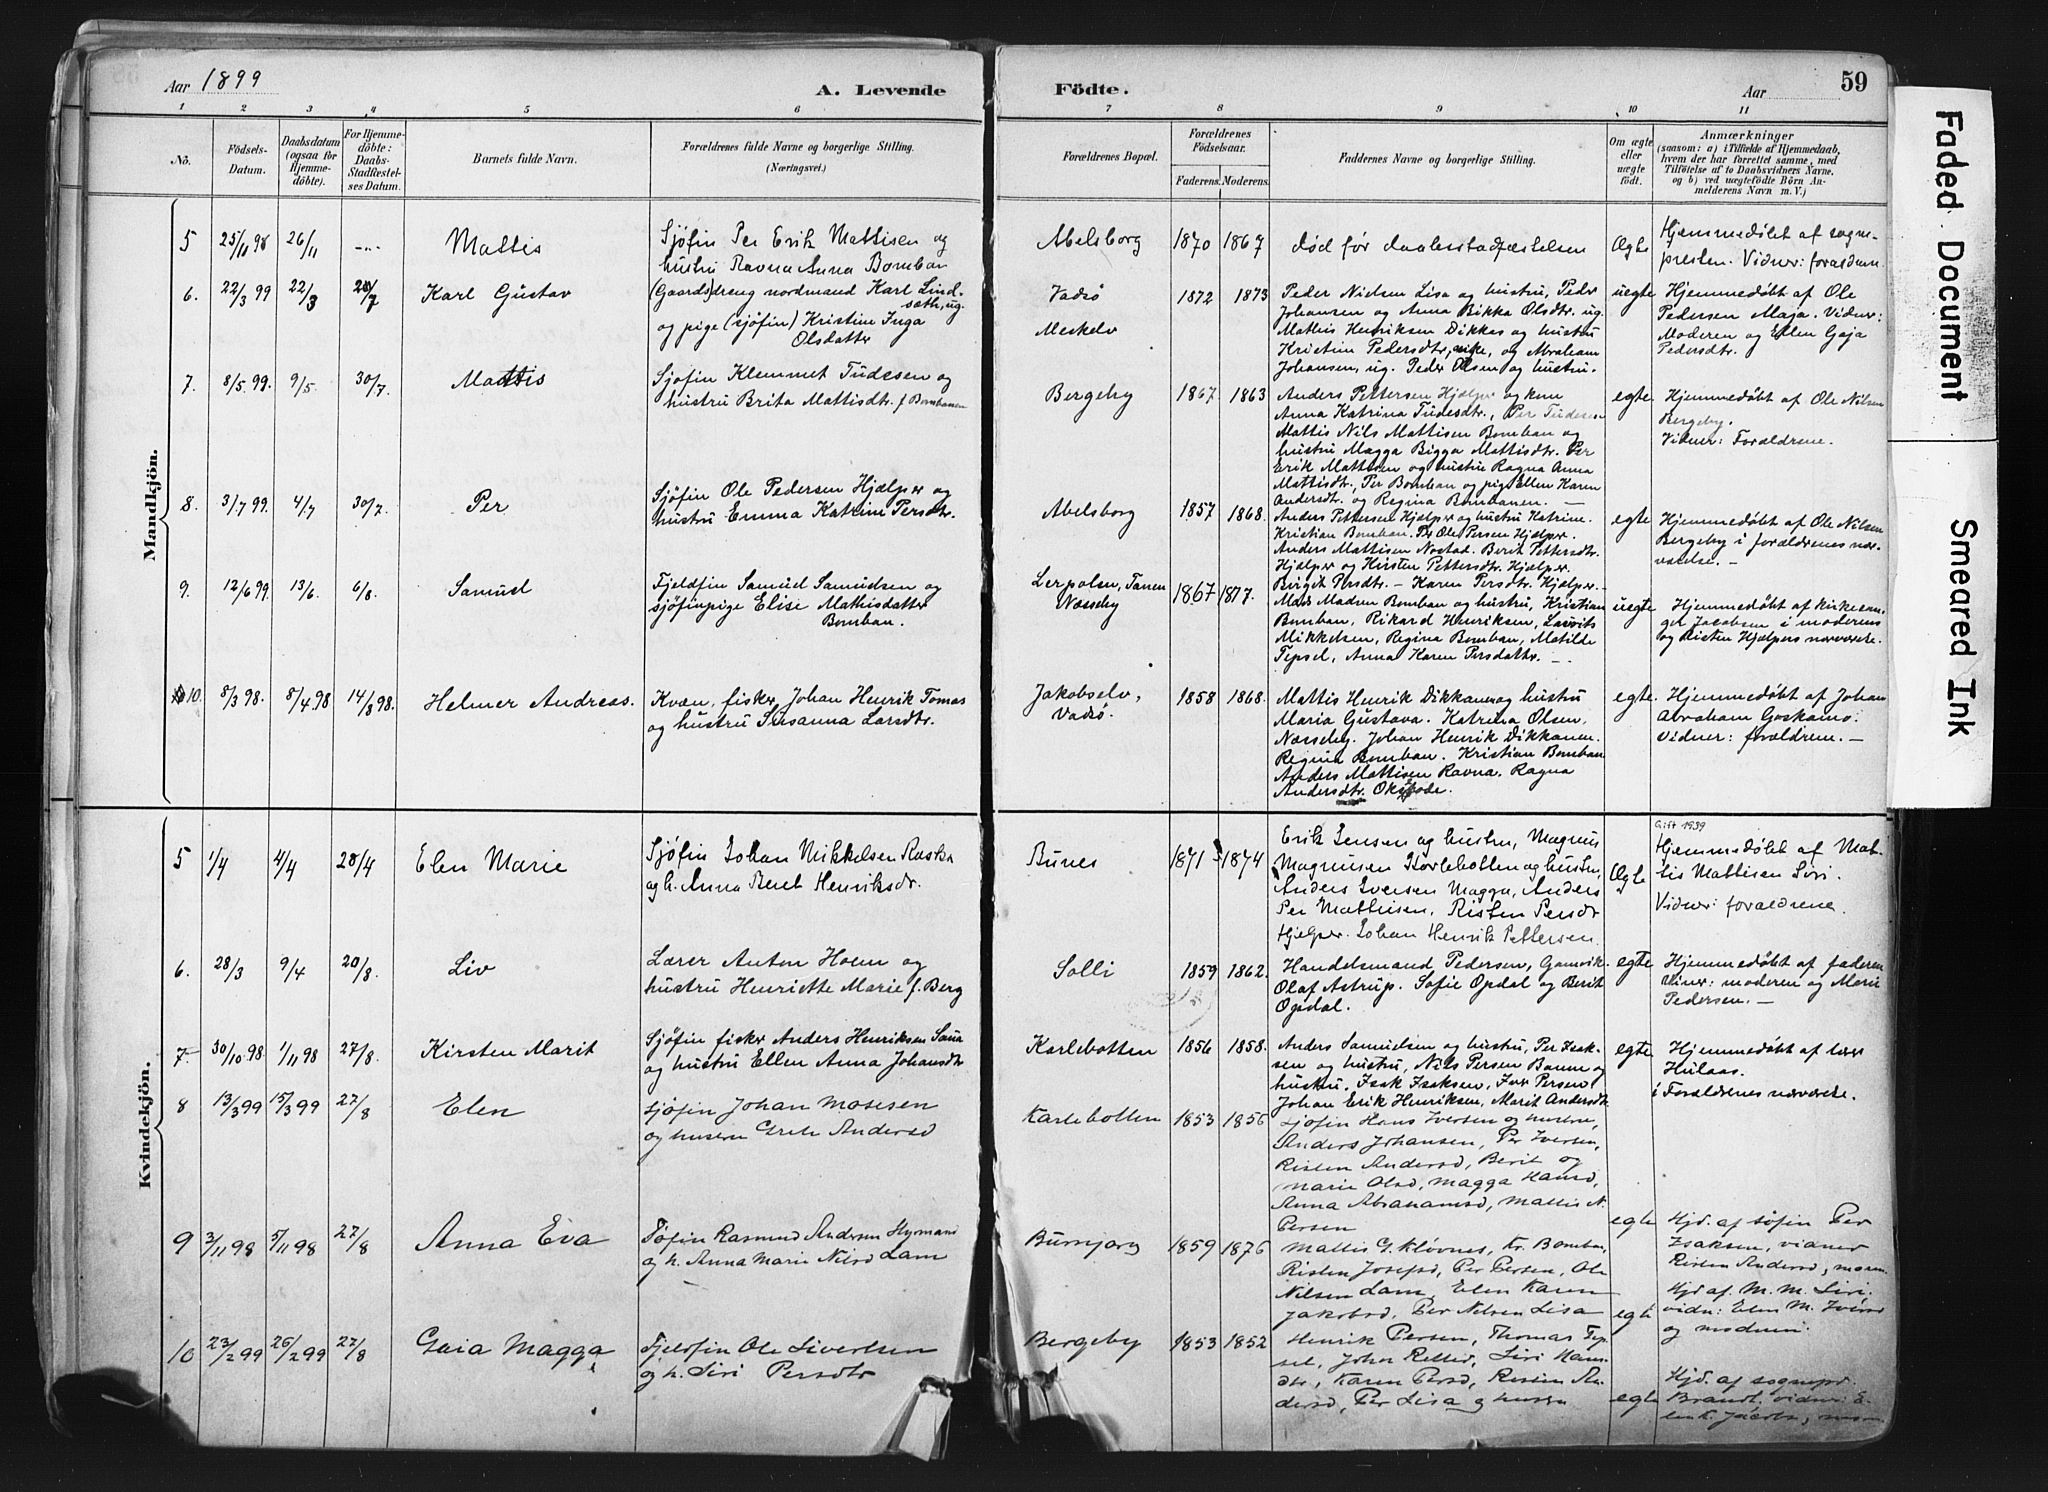 Aar 1899
A. Levende
Födte.
Aar
59
1 2 3 4 5 6 7 8 9 10 11
No.
Födsels-
Datum.
Daabsdatum
(ogsaa for
Hjemme-
döbte).
For Hjemme-
döbte:
Daabs-
Stadfæstel-
ses Datum.
Barnets fulde Navn.
Forældrenes fulde Navne og borgerlige Stilling.
(Næringsvei.)
Forældrenes Bopæl.
Forældrenes
Födselsaar.
Faderens. Moderens.
Faddernes Navne og borgerlige Stilling.
Om ægte
eller
uægte
födt.
Anmærkninger
(saasom: a) i Tilfælde af Hjemmedaab,
hvem der har forrettet samme, med
Tilföielse af to Daabsvidners Navne,
og b) ved uægtefödte Börn An-
melderens Navn m. V.)
Mandkjön.
5 25/11 98 26/11 -..- Mattis
Sjøfin Per Erik Mattisen og
hustru Ravna Anna Bomban
Abelsborg 1870 1867
død før daabsstadfæstelsen
Ægte
Hjemmedøbt af sogne-
presten. Vidner: forældrene
6. 22/3 99 22/3 Karl Gustav
(Gaards)dreng nordmand Karl Lind-
sæth, ug.
og pige (sjøfin) Kristine Inga
Olsdatter
Vadsø
Meskelv
1872 1873
Peder Nielsen Lisa og hustru, Peder
Johansen og Anna Bikka Olsdtr. ug.
Mathis Henriksen Dikkas og hustru
Kristine Pedersdtr, enke, og Abraham
Johansen, ug. Peder Olsen og hustru.
uegte
Hjemmedøbt af Ole
Pedersen Maja. Vidner:
Moderen og Ellen Gaja
Pedersdtr.
7. 8/5 99. 9/5 30/7. Mattis
Sjøfin Klemmet Tudesen og
hustru Brita Mattisdtr. f. Bombanen
Bergeby 1867. 1863
Anders Pettersen Hjælper og kone
Anna Katrina Tudesdtr., Per Tudesen
Mattis Nils Mattisen Bomban og
hustru Magga Bigga Mattisdtr. Per
Erik Mattisen og hustru Ragna Anna
Mattisdtr., Per Bomban og pig. Ellen Karen
Andersdtr. og Regina Bombanen. —
egte
Hjemmedøbt af Ole Nilsen
Bergeby.
Vidner: Forældrene.
8. 3/7 99. 4/7 30/7. Per
Sjøfin Ole Pedersen Hjælper og
hustru Emma Katrine Persdtr.
Abelsborg 1857 1868.
Anders Pettersen Hjælper og hustru Katrine.
Kristian Bomban. Per Ole Persen Hjælper.
Anders Mattisen Nostad. Berit Pettersdtr.
Hjælper og Kirsten Pettersdtr. Hjælper.
Birgit Persdtr. — Karen Persdtr. Hjælper.
egte
Hjemmedøbt af Ole Nilsen
Bergeby i forældrenes nær-
værelse.
9. 12/6 99. 13/6. 6/8. Samuel
Fjeldfin Samuel Samuelsen og
sjøfinpige Elise Mathisdatter
Bomban.
Lerpolen, Tanen
Næsseby
1867 1877.
Mads Madsen Bomban og hustru, Kristian
Bomban, Rikard Henriksen, Lauvits
Mikkelsen, Regina Bomban, Matilde
Tepsel, Anna Karen Persdatter. —
uegte
Hjemmedøbt af kirkesan-
ger Jacobsen i moderens
og Risten Hjælpers nærværelse.
10. 8/3 98. 8/4.98 14/8 98. Helmer Andreas.
Kvæn, fisker Johan Henrik Tomas
og hustru Susanna Larsdtr.
Jakobselv,
Vadsø.
1858 1868.
Mattis Henrik Dikkanen og hustru
Maria Gustava. Katrina Olsen.
Næsseby. Johan Henrik Dikkanen.
Regina Bomban. Kristian Bomban.
Anders Mattisen Ravna. Ragna
Andersdtr.
egte.
Hjemmedøbt af Johan
Abraham Goskamo.
Vidner: forældrene. —
Kvindekjön.
5 1/4 4/4 28/4 Elen Marie
Sjøfin Johan Mikkelsen Raska
og h. Anna Beret Henriksdr.
Bunes 1871 1874
Erik Jensen og hustru, Magnus
Magnusen Karlebotten og hustru,
Anders Iversen Magga, Anders
Per Mathisen, Risten Persdr
Hjelper. Johan Henrik Pettersen.
Ægte
Gift 1939
Hjemmedøbt af Mat-
tis Mattisen Siri.
Vidner: forældrene.
6. 28/3 9/4 20/8. Liv
Lærer Anton Hoem og
hustru Henriette Marie f. Berg
Solli 1859 1862.
Handelsmand Pedersen, Gamvik.
Olaf Astrup. Sofie Opdal og Berit
Opdal.
egte
Hjemmedøbt af faderen
Viner: moderen og Marie
Pedersen. —
7. 30/10.98 1/11 98 27/8. Kirsten Marit
Sjøfin fisker Anders Henriksen Saua
og hustru Ellen Anna Johansdtr
Karlebotten 1856 1858.
Anders Samuelsen og hustru, Per Isak-
sen og hustru, Nils Persen Banne og
hustru. Isak Isaksen, Iver Persen
Johan Erik Henriksen, Marit Andersdtr
egte
Hjemmedøbt af lærer
Hulaas.
i Forældrenes nærværelse.
8 13/3 99 15/3 99 27/8 Elen
sjøfin Johan Mosesen
og hustru Grete Andersd
Karlebotten 1853 1856
Sjøfin Hans Iversen og hustru,
Anders Johansen, Per Iversen,
Risten Andersd, Berit og
Marie Olsd, Magga Hansd,
Anna Abrahamsd, Mattis N.
Persen
egte
Hjd. af søfin Per
Isaksen, vidner
Risten Andersd, moren
9 3/11 98 5/11 98 27/8 Anna Eva
Søfin Rasmus Andersen Nymand
og h. Anna Marie Nilsd Lam
Burnjarg 1859 1876
Mattis G. Kløvnes, Kr. Bomban,
Risten Josefsd, Per Persen, Ole
Nilsen Lam, Elen Karen
Jakobsd, Per Nilsen Lisa
egte
Hjd af. M. M. Siri.
vidn: Elen M. Iversd
og moderen.
10 23/2 99 26/2 99 27/8 Gaia Magga
Fjelfin Ole Sivertsen
og h. Siri Persdtr
Bergeby 1853 1852
Henrik Persen, Thomas Tep-
sel, John Reited, Siri Hans-
dtr, Karen Persd, Risten An-
dersd, Per Lisa og hustru
egte
Hjd. af sognepr.
Brandt, vidner: E-
len K. Jacobs,
Faded Document
Smeared Ink